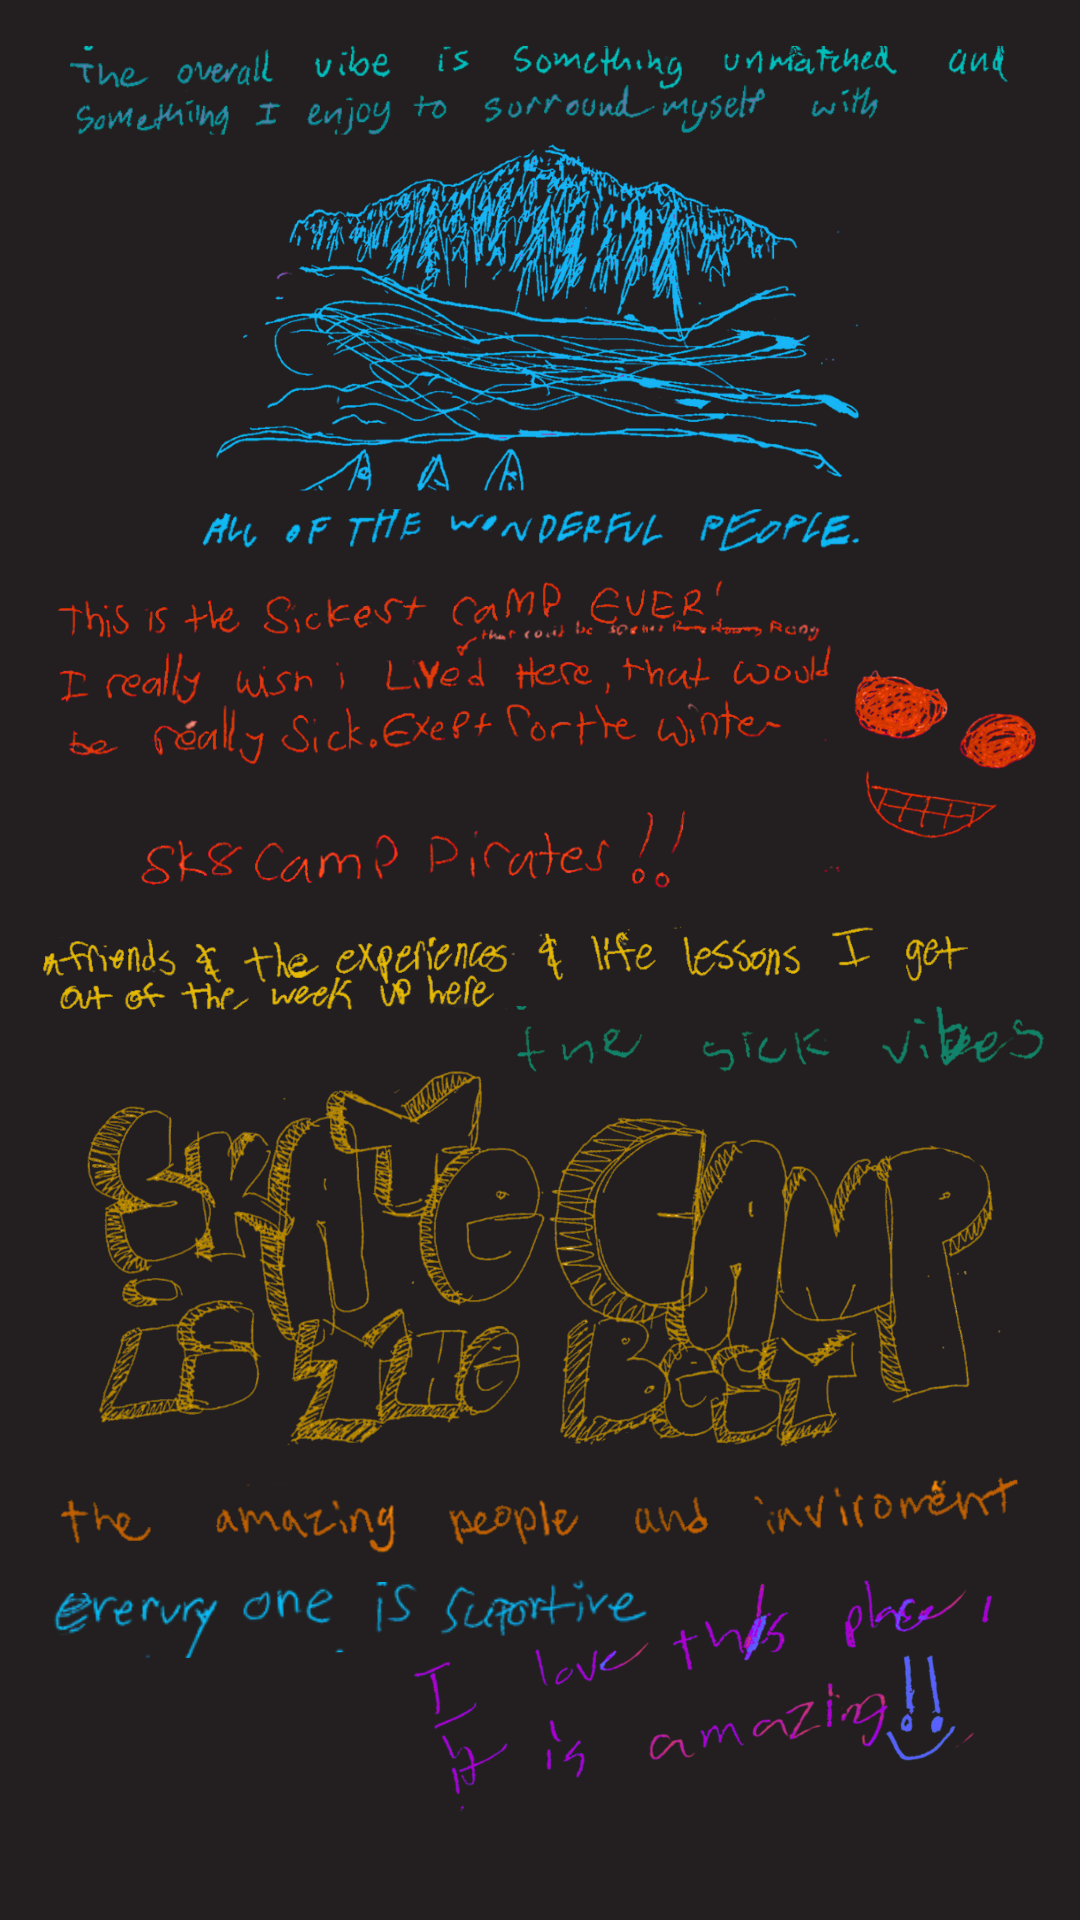 The overall vibe is something unmatched and
Something I enjoy to surround myself with
ALL OF THE WONDERFUL PEOPLE.
This is the Sickest CAMP EVER!
that could be Rong
I really wish i Lived Here, that would
be really Sick. Exept for the winter
SK8 Camp Pirates!!
friends & the experiences & life lessons I get
out of the week up here
the sick vibes
SKATE CAMP
is THE BEST
the amazing people and inviroment
erervry one is suportive
I love this place,
It is amazing!!